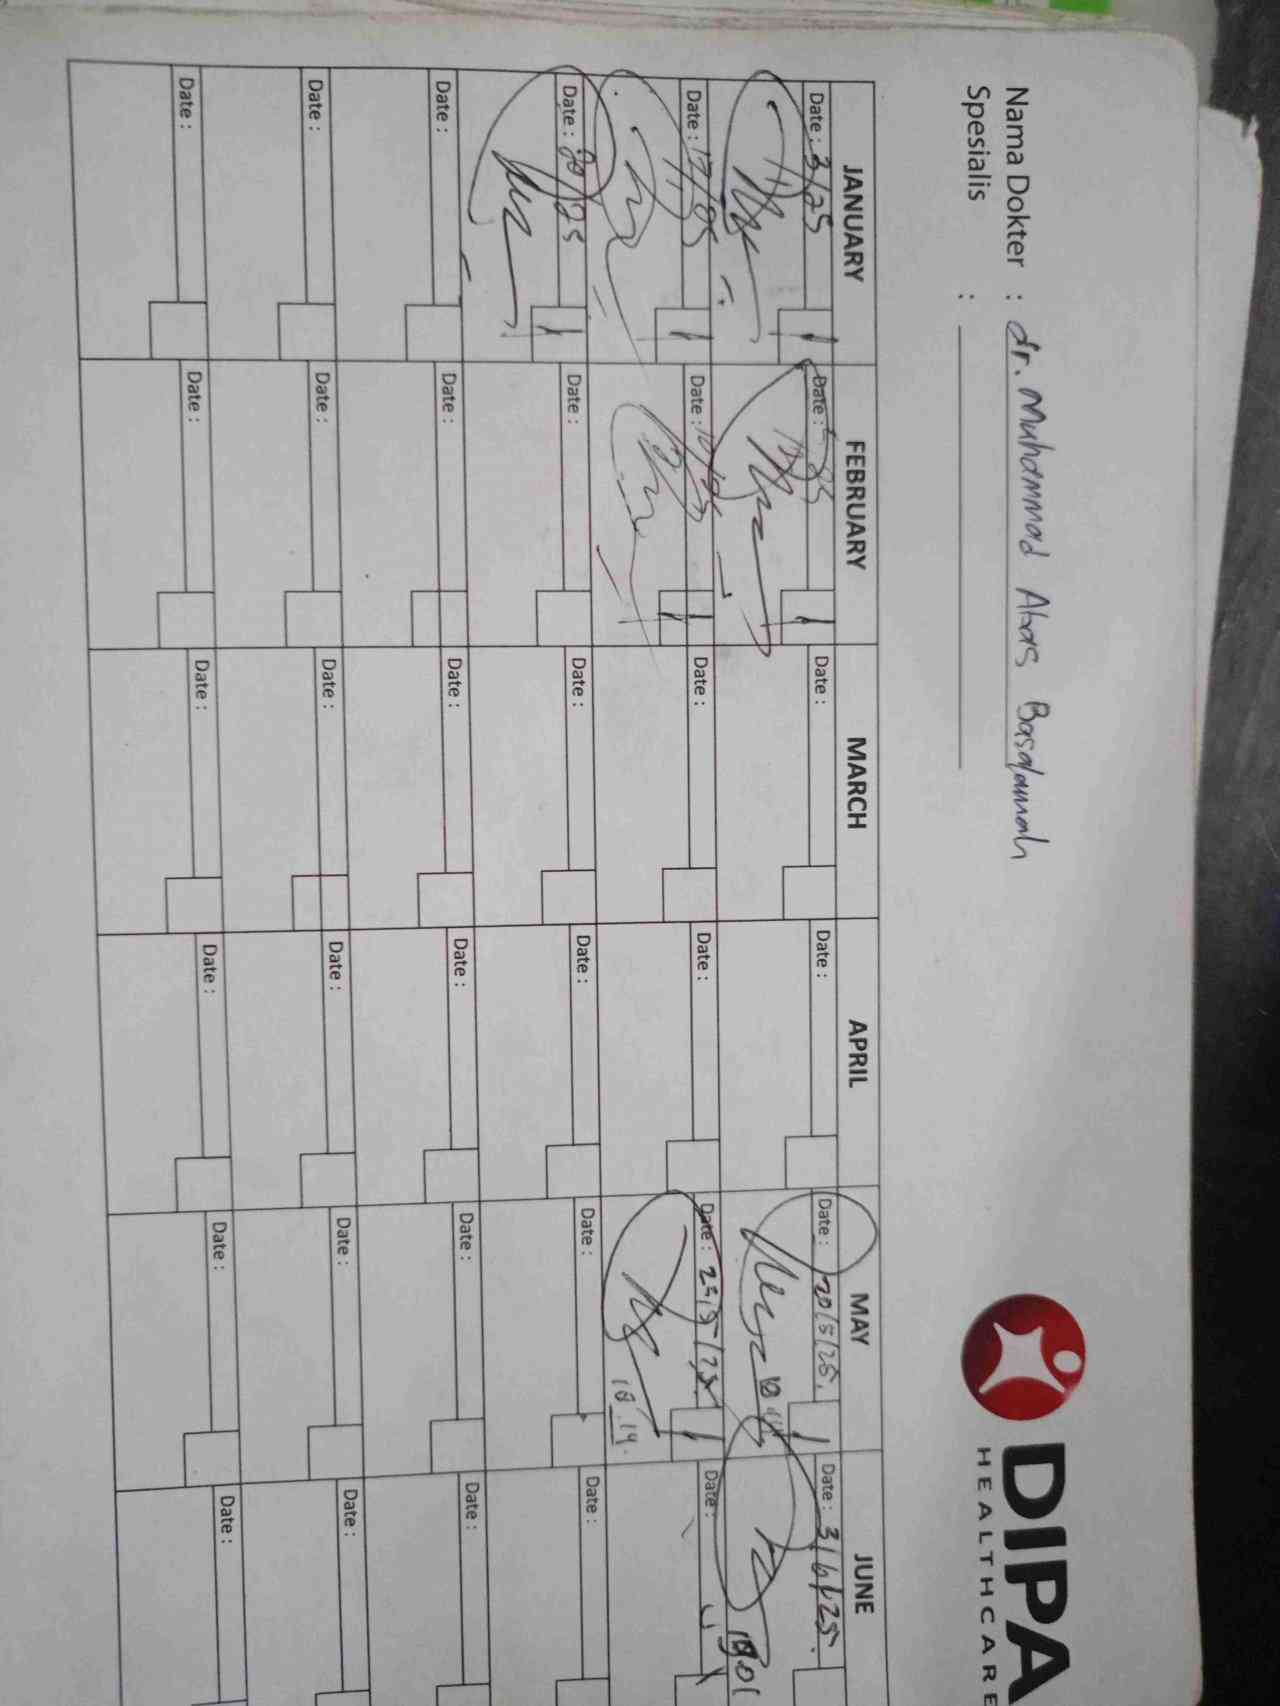 DIPA
HEALTHCARE
Nama Dokter : dr. Muhammad Abas Basalamah
Spesialis :
JANUARY FEBRUARY MARCH APRIL MAY JUNE
Date : 3/25 Date : Date : Date : Date : 20/5/25. Date : 3/6/25.
Date : 17/25 Date : Date : Date : Date : 25/5/25. Date :
18.14.
Date : 20/25 Date : Date : Date : Date : Date :
Date : Date : Date : Date : Date : Date :
Date : Date : Date : Date : Date : Date :
Date : Date : Date : Date : Date : Date :